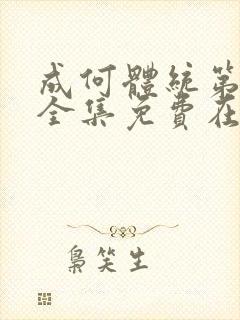 成何體統第
全集免費在
梟笑生